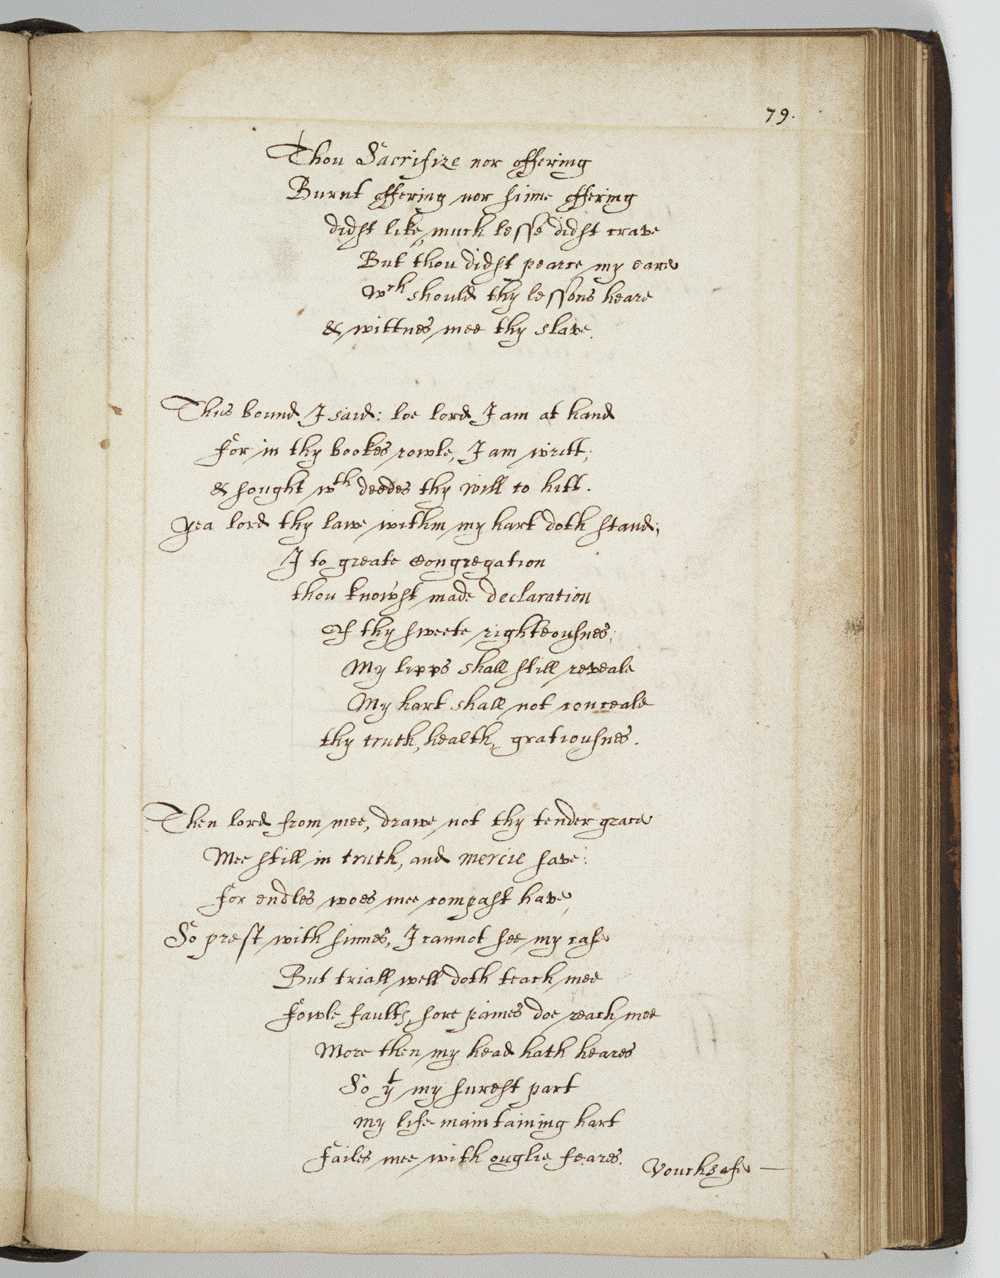 79.
Thou Sacrifize nor offering
Burnt offering nor sinne offering
didst like, much lesse didst crave
But thou didst pearce my eare
wch should thy lessons heare
& wittnes mee thy slave.
Thus bound I said: loe lord I am at hand
For in thy bookes rowle, I am writt;
& sought wth deedes thy will to hitt.
yea lord thy lawe within my hart doth stand;
I to greate Congregation
thou knowst made declaration
Of thy sweete righteousnes;
My lipps shall still reveale
My hart shall not conceale
thy truth, health, gratiousnes.
Then lord from mee, drawe not thy tender grace
Mee still in truth, and mercie save:
For endles woes mee compast have,
So prest with sinnes, I cannot see my case
But triall well doth teach mee
Fowle faults, sore paines doe reach mee
More then my head hath heares
So yt my surest part
my life maintaining hart
Failes mee with ouglie feares.
Vouchsafe —